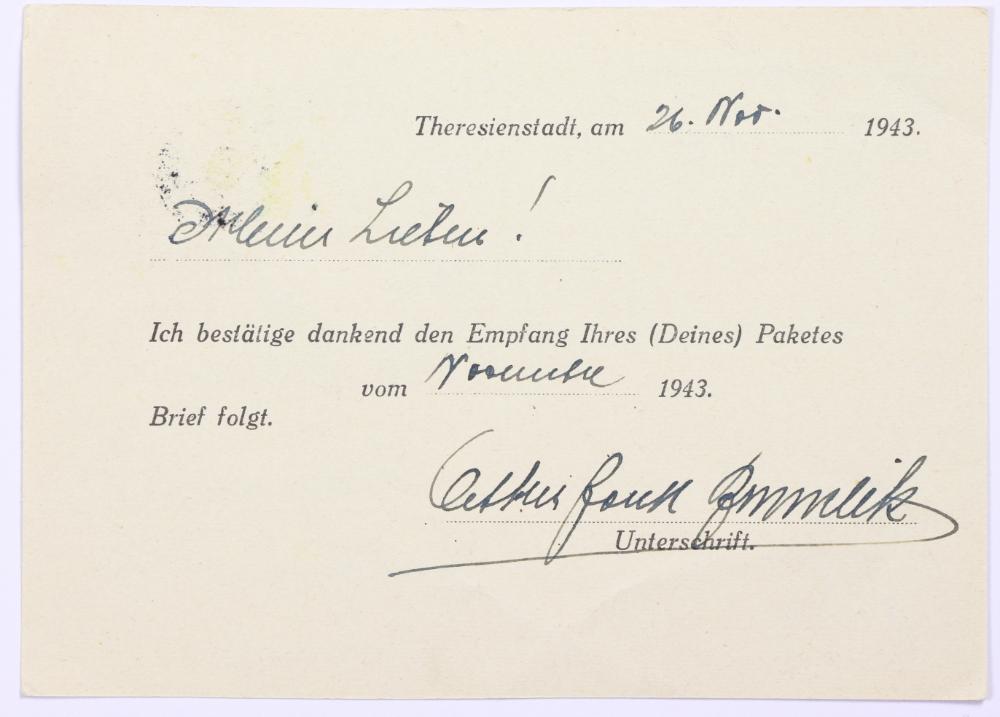 Theresienstadt, am 26. Nov. 1943.
Meine Lieben!
Ich bestätige dankend den Empfang Ihres (Deines) Paketes
vom November 1943.
Brief folgt.
Unterschrift.